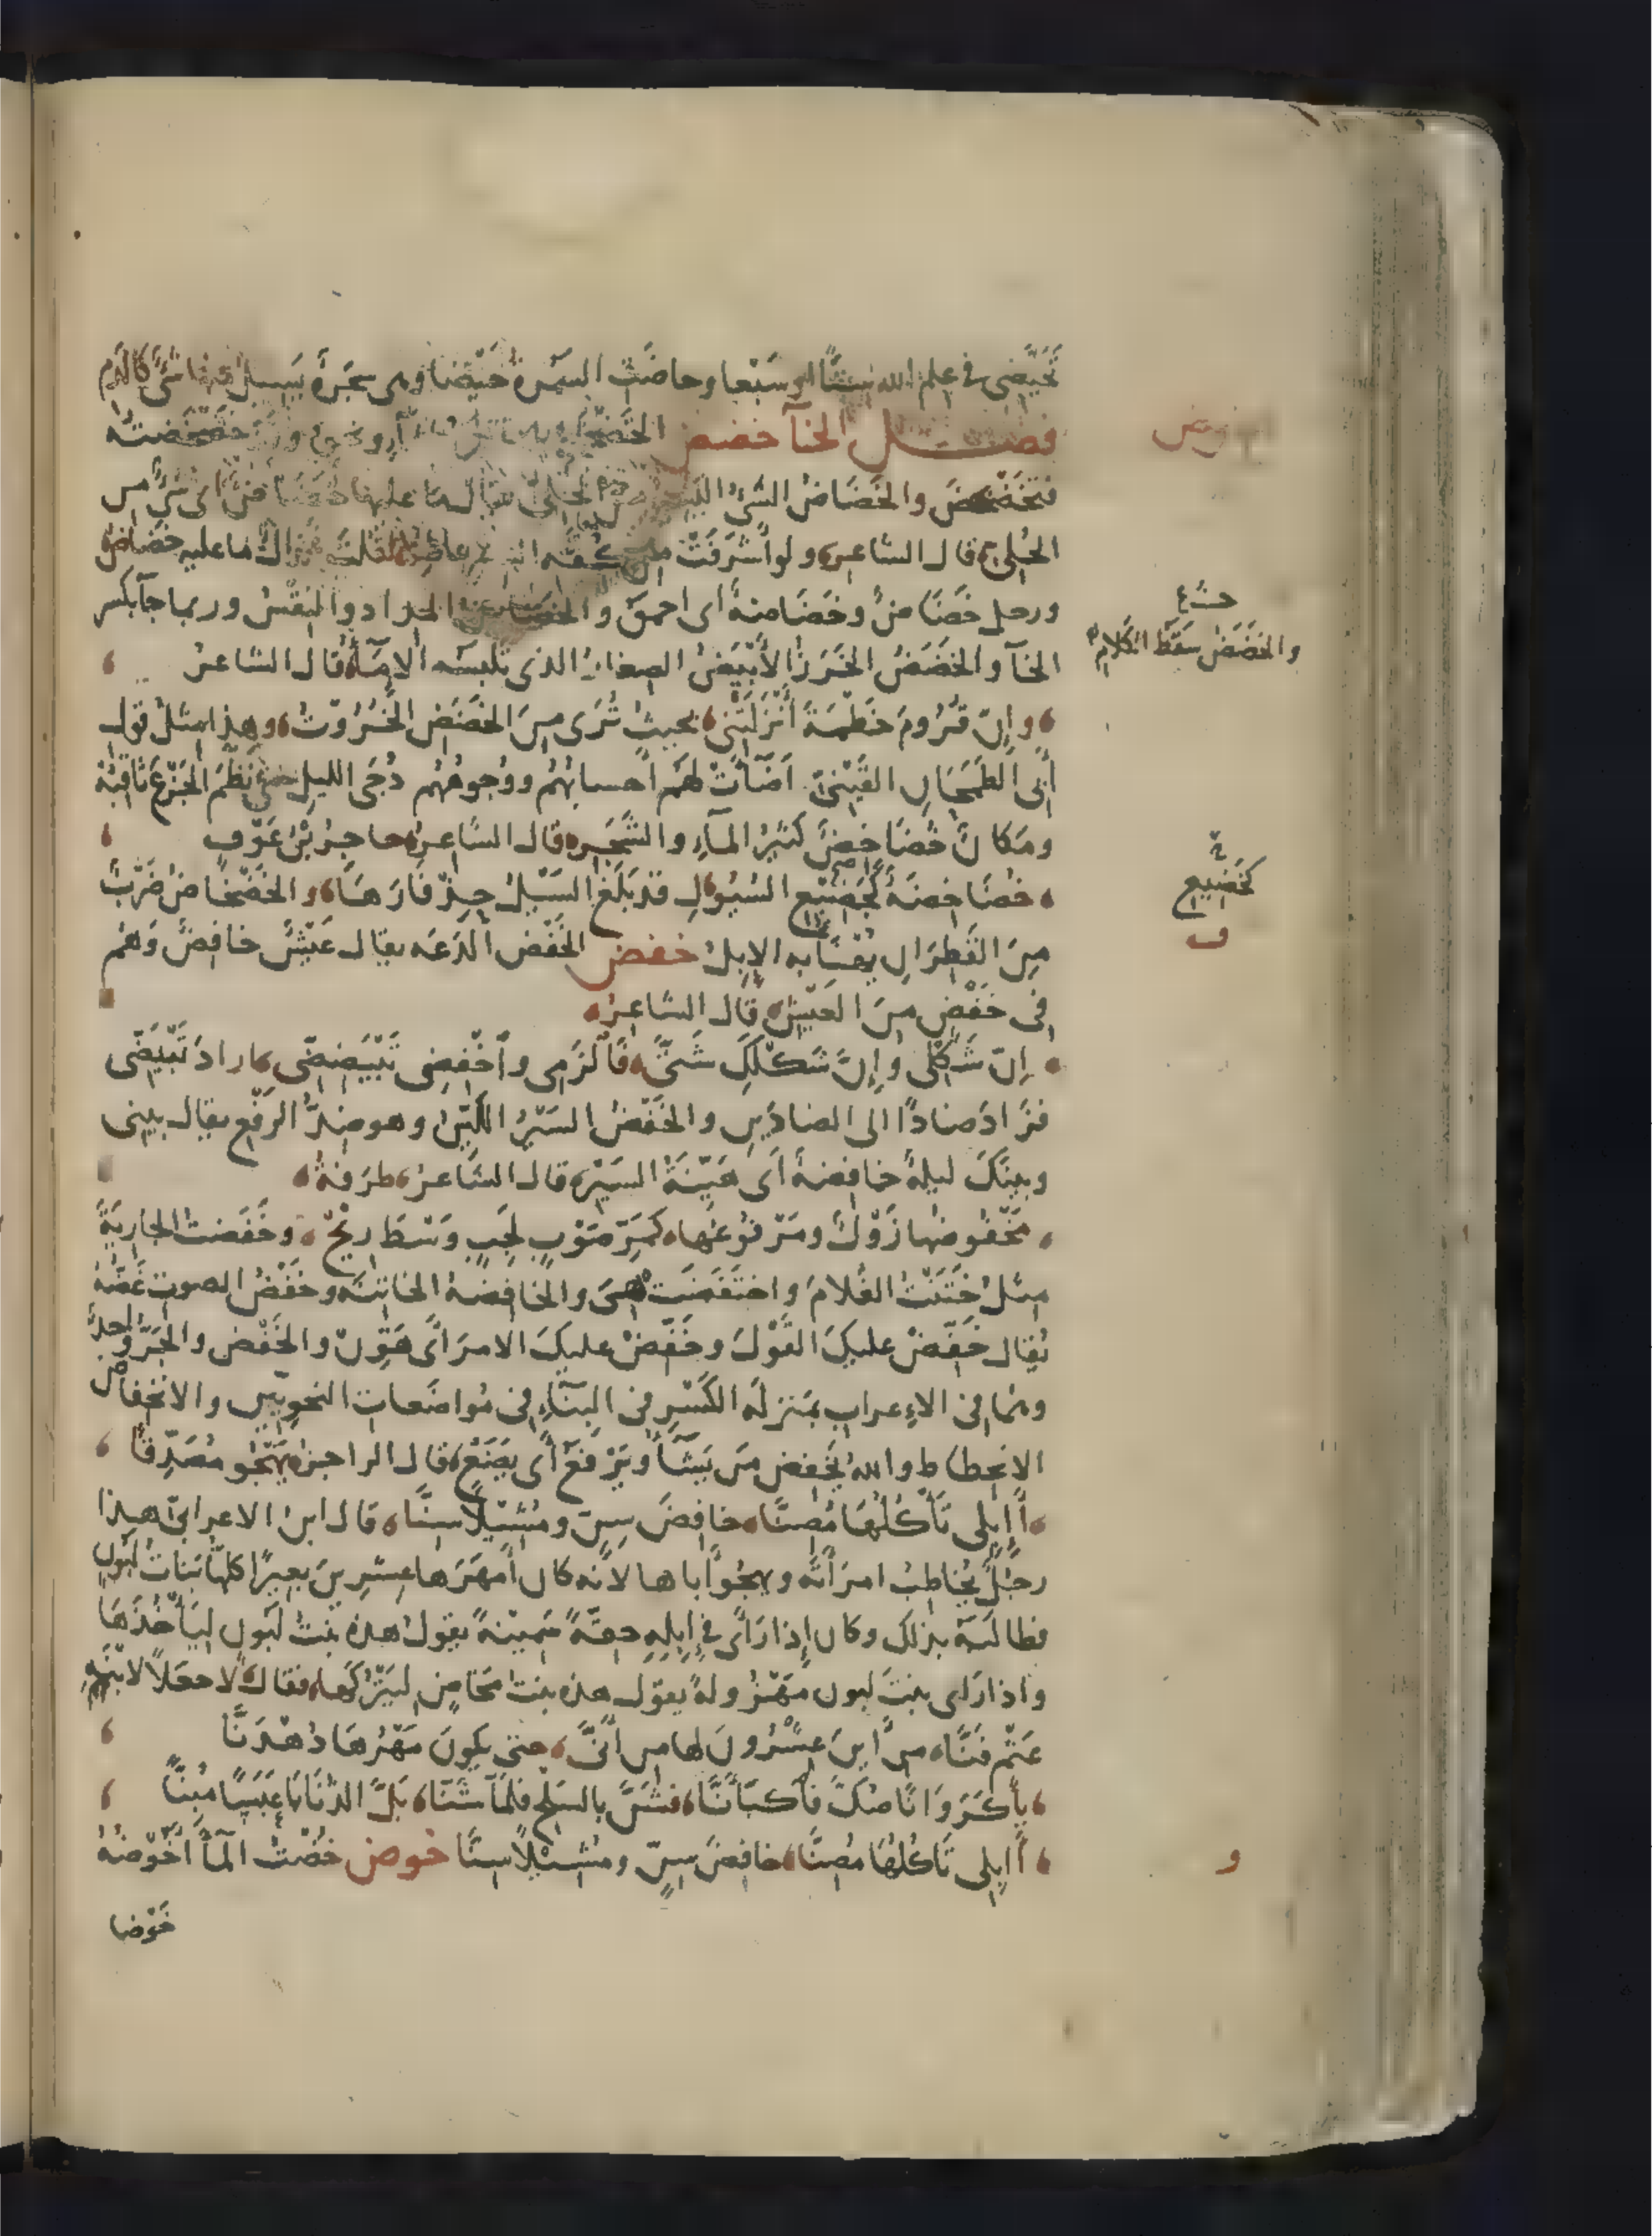 تَحَيَّضِى فى عِلم الله سِتًّا او سَبْعا وحاضَتِ السَّمُرةُ حَيْضًا وهى شجَرةٌ يَسِيلُ منها شىٌ كالدَّمِ
فصــل الخآ خضض الخَضْخَضَةُ تحريكُ المآءِ ونحوِه وقد خَضْخَضتُه
فتَخَضْخَضَ والخَضَاضُ الشىُ اليَسِيرُ من الحُلِىِّ يقال ما عليها خَضَاضٌ اى شىٌ من
الحُلِىِّ قال الشاعر ولو أَشرَفَتْ من كُفَّةِ السترِ عاطِلًا لَقُلتَ غَزَالٌ ما عليه خَضَاضُ
ورجل خَضَاضٌ وخَضَاضةٌ اى احمقُ والخَضَاضُ المِدادُ والنِقْسُ وربما جآ بكسر
الخآ والخَضَضُ الخَرَزُ الأَبْيَضُ الصغارُ الذى تلبسُه الامآء قال الشاعر
وإنّ قُرُومَ خَطْمَةَ أَنْزَلَتْنى بحيثُ تُرَى مِنَ الخَضَضِ الخُرُوتُ وهذا مثلُ قول
أبى الطَمَحَانِ القَيْنىّ أضَآتْ لهم أحسابُهُم ووُجوهُهُم دُجَى الليلِ حتى نَظَّمَ الجَزْعَ ثاقِبُهْ
ومَكانٌ خُضَاخِضٌ كثيرُ المآءِ والشَّجَرِ قال الشاعر حاجزُ بْنُ عَوْفٍ
خُضَاخِضةٌ بخَضِيْعِ السُيُولِ قد بَلَغَ السَيْلُ حِذْفَارَهَا والخَضْخاضُ ضَرْبٌ
مِنَ القَطِرَانِ يُهْنَأ به الإبلُ خفض الخَفْضُ الدَعَه يقال عَيْشٌ خافِضٌ وَهُم
فى خَفْضٍ مِنَ العَيْشِ قال الشاعر
إنّ شَكْلِى وإنّ شَكْلَكِ شَتَّى فَٱلْزَمِى وٱخْفِضِى تَبْيَضِضِّى اراد تَبْيَضِّى
فزَادَ ضادًا الى الضادَينِ والخَفْضُ السَيْرُ اللَّيّنُ وهو ضِدُّ الرَفْع يقال بينى
وبينَكَ ليلةٌ خافِضةٌ أى هَيِّنَةُ السَيْرِ قال الشاعر طرَفةُ
مَخْفُوضُها زَوْلٌ ومَرْفُوعُها كَمَرِّ صَوْبٍ لَجِبٍ وَسْطَ رِيْحْ وخَفَضتُ الجاريَةَ
مِثلُ خَتَنْتُ الغُلامَ واختَفَضَتْ هى والخافِضةُ الخاتِنَةُ وخَفْضُ الصوتِ غَضُّهُ
يُقال خَفِّضْ عليكَ القَوْلَ وخَفِّضْ عليكَ الامرَ أى هَوِّنْ والخَفْض والجَرُّ واحدٌ
وهُما فى الاعرابِ بمَنزلةِ الكَسْرِ فى البِنَآءِ فى مُواضَعاتِ النحوِيّين والانخِفاض
الانحِطاط والله يَخْفِض مَن يَشَآ ويَرْفَعُ أى يَضَعُ قال الراجز يَهْجُو مُصَدِّقًا
أَإِبِلِى تَأْكُلُهَا مُصِنًّا خافِضَ سِنٍّ ومُشِيْلًا سِنًّا قال ابن الاعرابىّ هذا
رجُلٌ يُخاطِبُ امرَأتَه ويهجُو أباها لانّه كان أمهَرَها عِشرِينَ بعيرًا كلّها بَناتُ لَبونٍ
فطالَبَه بذلك وكان إذا رأى فى إبِلِهِ حِقَّةً سَمِيْنةً يقول هذه بنتُ لَبُون لِيَأخُذَهَا
واذا رَاى بنتَ لبون مَهْزُولةً يقول هذه بنتُ مَخاضٍ ليَتْرُكَها فقال لاجعَلًا لابْنَةِ
عَثْمٍ فَنَّا من أين عِشْرُونَ لها من أَنَّى حتى يكونَ مَهْرُهَا دُهْدَنَّا
يأكَرَوَانًا صُكَّ فَٱكْبَأَنَّا فشَنَّ بالسَلْحِ فلمّا شَنَّا بَلَّ الذُنَابَا عَبَسًا مُبِنًّا
أَإبلى تَأكُلُهَا مُصِنًّا خافِضَ سِنٍّ ومُشِيْلًا سِنَّا خوض خُضْتُ المآ أَخُوضُهُ
خَوْضا
والخَضَضُ سَقَطُ الكلامِ
كخَضِيع
ف
و